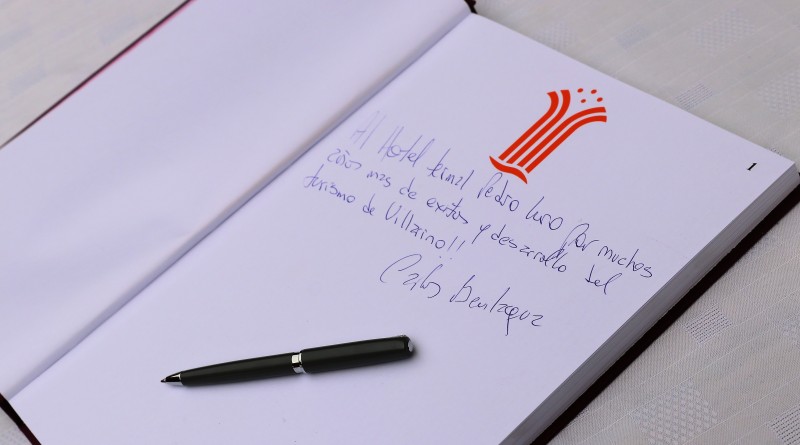 1
Al Hotel termal Pedro Luro por muchos
años mas de exitos y desarrollo del
turismo de Villarino!!
Carlos Bentaque